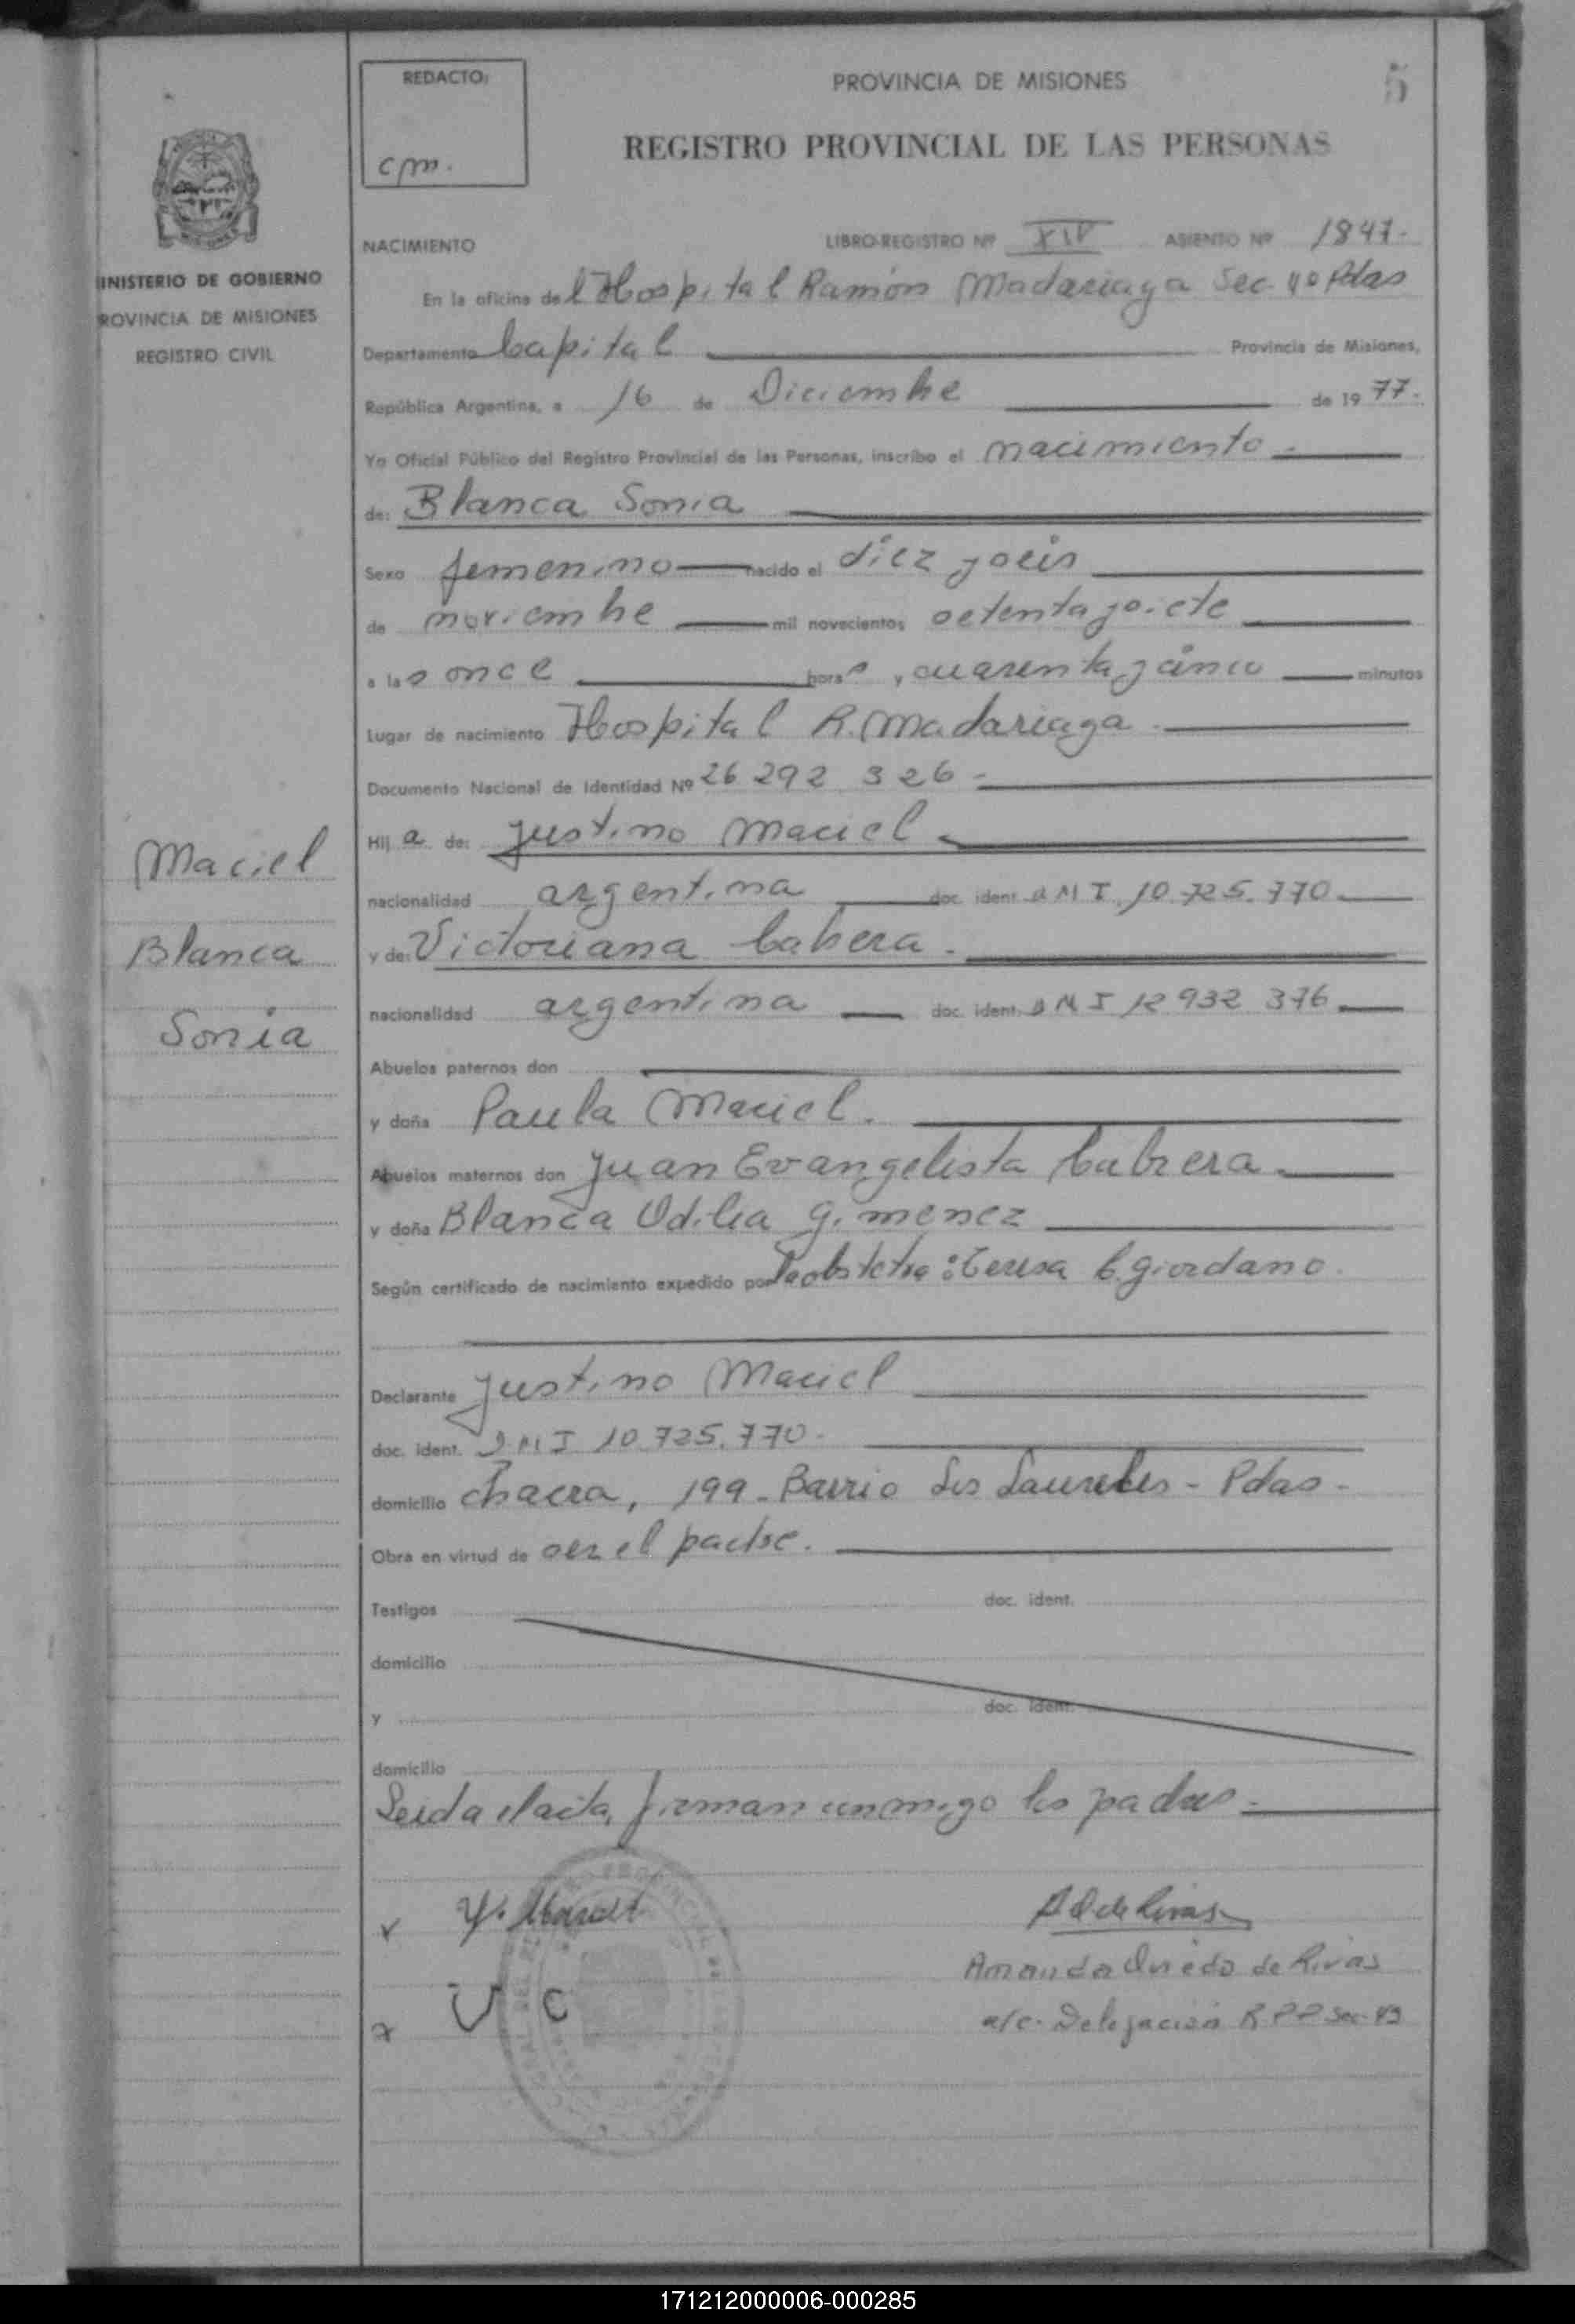 REDACTO:
cm.
PROVINCIA DE MISIONES
5
REGISTRO PROVINCIAL DE LAS PERSONAS
INISTERIO DE GOBIERNO
ROVINCIA DE MISIONES
REGISTRO CIVIL
NACIMIENTO LIBRO-REGISTRO Nº XIV ASIENTO Nº 1847-
En la oficina del Hospital Ramón Madariaga Sec. 4º Pdas
Departamento Capital Provincia de Misiones,
República Argentina, a 16 de Diciembre de 1977.
Yo Oficial Público del Registro Provincial de las Personas, inscribo el nacimiento.
de: Blanca Sonia
Sexo femenino nacido el diez y seis
de noviembre mil novecientos setenta y siete
a las once horas y cuarenta y cinco minutos
Lugar de nacimiento Hospital R. Madariaga.
Documento Nacional de Identidad Nº 26 292 326-
Hija de: Justino Maciel
nacionalidad argentina doc. ident. DNI. 10.725.770
y de: Victoriana Cabrera.
nacionalidad argentina doc. ident. DNI 12 932 376
Abuelos paternos don
y doña Paula Maciel.
Abuelos maternos don Juan Evangelista Cabrera.
y doña Blanca Odilia Gimenez
Según certificado de nacimiento expedido por la obstetra: Teresa C. Giordano.
Declarante Justino Maciel
doc. ident. DNI 10.725.770.
domicilio Chacra, 199- Barrio Los Laureles - Pdas -
Obra en virtud de ser el padre.
Testigos doc. ident.
domicilio
y doc. ident.
domicilio
Leida el acta, firman conmigo los padres.
Maciel
Blanca
Sonia
x J. Maciel
A O de Rivas
Amanda Oviedo de Rivas
x V C
a/c. Delegación R.P.P Sec. 4º
171212000006-000285